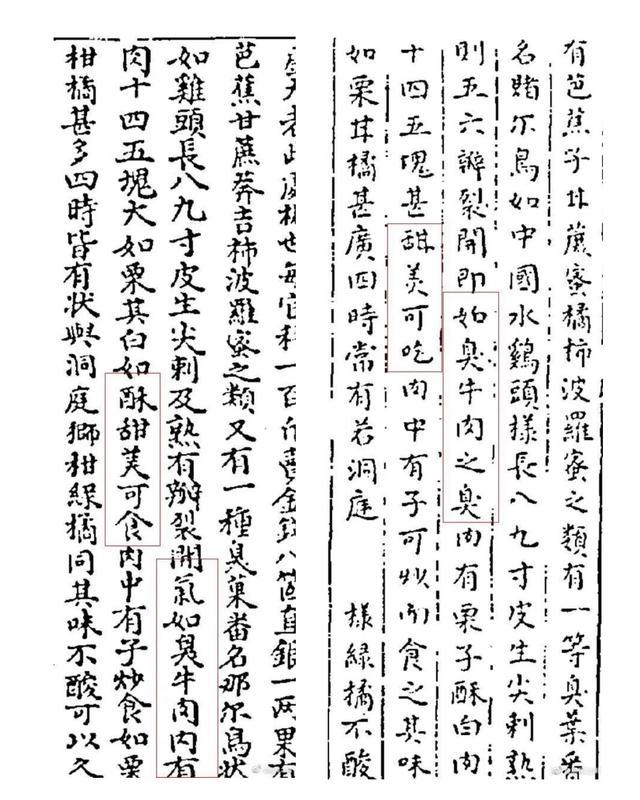 有芭蕉子甘蔗蜜橘柿波羅蜜之類有一等臭葉番
名賭尔烏如中國水鷄頭樣長八九寸皮生尖刺熟
則五六瓣裂開即如臭牛肉之臭内有栗子酥白肉
十四五塊甚甜美可吃肉中有子可炒而食之其味
如栗甘橘甚廣四時常有若洞庭 樣緑橘不酸
也每官秤一百斤賣金錢八箇直銀一兩果有
芭蕉甘蔗莽吉柿波羅蜜之類又有一種臭菓番名那尔烏狀
如雞頭長八九寸皮生尖刺及熟有瓣裂開氣如臭牛肉内有
肉十四五塊大如栗其白如酥甜美可食肉中有子炒食如栗
柑橘甚多四時皆有狀與洞庭獅柑緑橘同其味不酸可以久